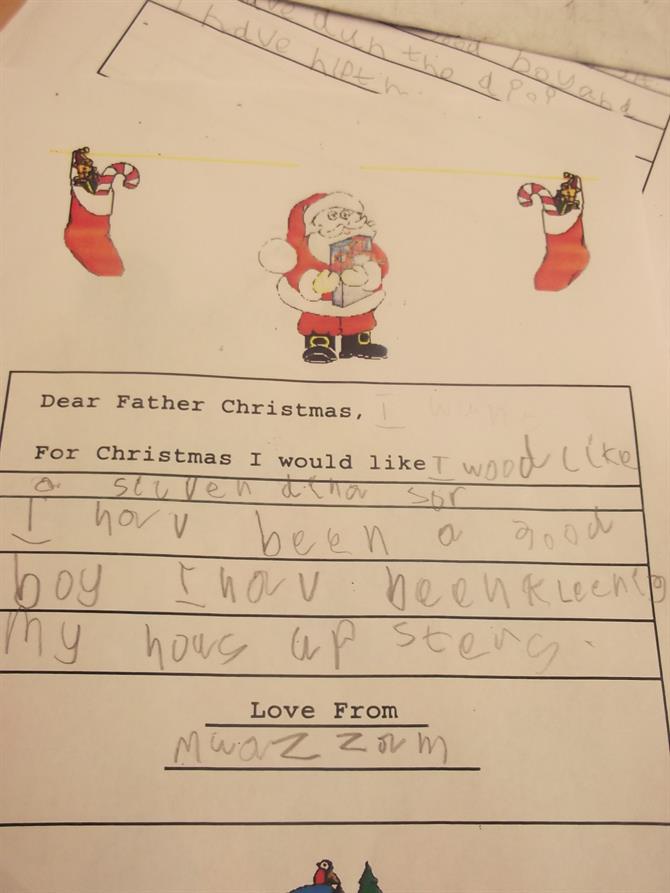 boy and
I have dun the d
hlpth.
Dear Father Christmas, I wan
For Christmas I would like I wood like
a stuven dina sor
I hav been a good
boy I hav been kleenig
my hows up sters.
Love From
Mwazzam